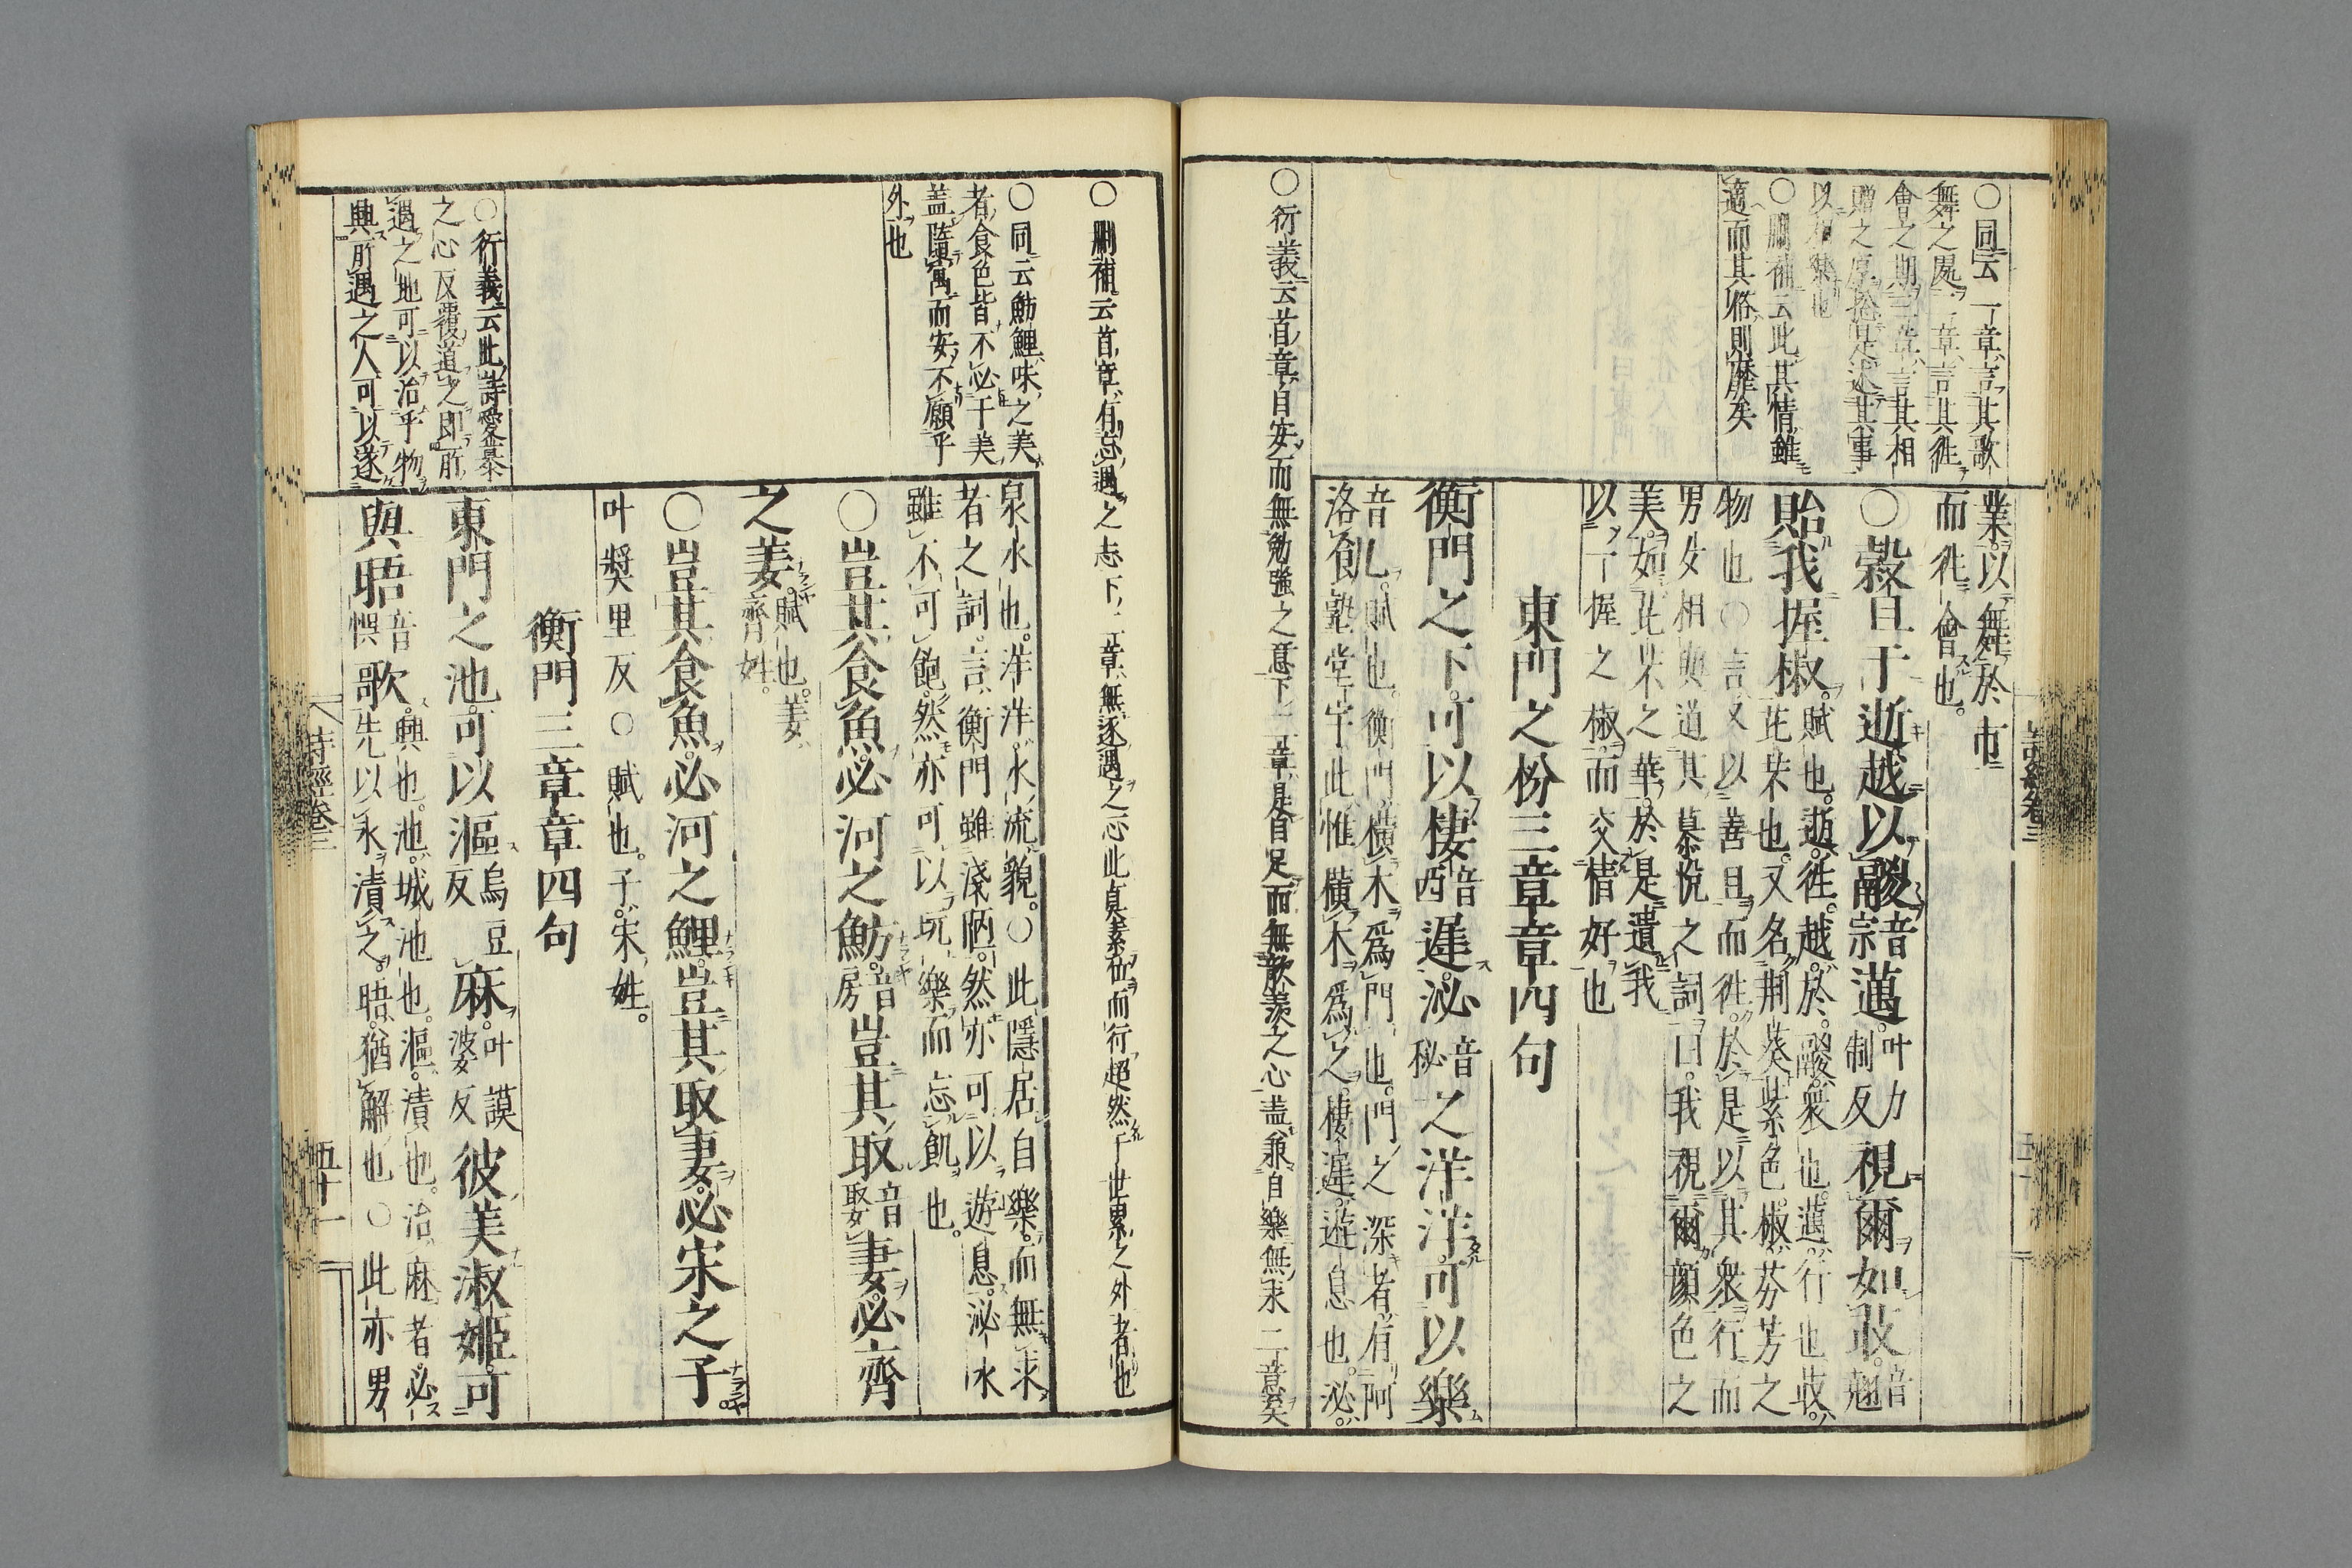 ○同云一章言其歌
舞之處二章言其徃
會之期三章言其相
贈之厚捴是述其事
以相樂也
○刪補云此其情雖
適而其俗則靡矣
業以舞於市
而徃會也
○穀旦于逝越以鬷音宗邁叶力制反視爾如荍音翹
貽我握椒賦也逝徃越於鬷衆也邁行也荍
芘芣也又名荊葵紫色椒芬芳之
物也○言又以善旦而徃於是以其衆行而
男女相與道其慕悅之詞曰我視爾顏色之
美如芘芣之華於是遺我
以一握之椒而交情好也
東門之枌三章章四句
衡門之下可以棲音西遲泌音秘之洋洋可以樂
音飢賦也衡門橫木爲門也門之深者有阿
洛飢塾堂宇此惟橫木爲之棲遲遊息也泌
○衍義云首章自安而無勉強之意下二章是自足而無歆羨之心盖兼自樂無求二意矣
○刪補云首章有忘遇之志下二章無逐遇之心此眞素位而行超然于世累之外者也
○同云魴鯉味之美
者食色皆不必于美
盖隨寓而安不願乎
外也
○衍義云此詩愛慕
之心反覆道之即所
遇之地可以治乎物
興所遇之人可以遂
泉水也洋洋水流貌○此隱居自樂而無求
者之詞言衡門雖淺陋然亦可以遊息泌水
雖不可飽然亦可以玩樂而忘飢也
○豈其食魚必河之魴音房豈其取音娶妻必齊
之姜賦也姜齊姓
○豈其食魚必河之鯉豈其取妻必宋之子
叶奨里反○賦也子宋姓
衡門三章章四句
東門之池可以漚烏豆反麻叶謨婆反彼美淑姬可
與晤音悞歌興也池城池也漚漬也治麻者必
先以水漬之晤猶解也○此亦男
詩經卷三
五十一